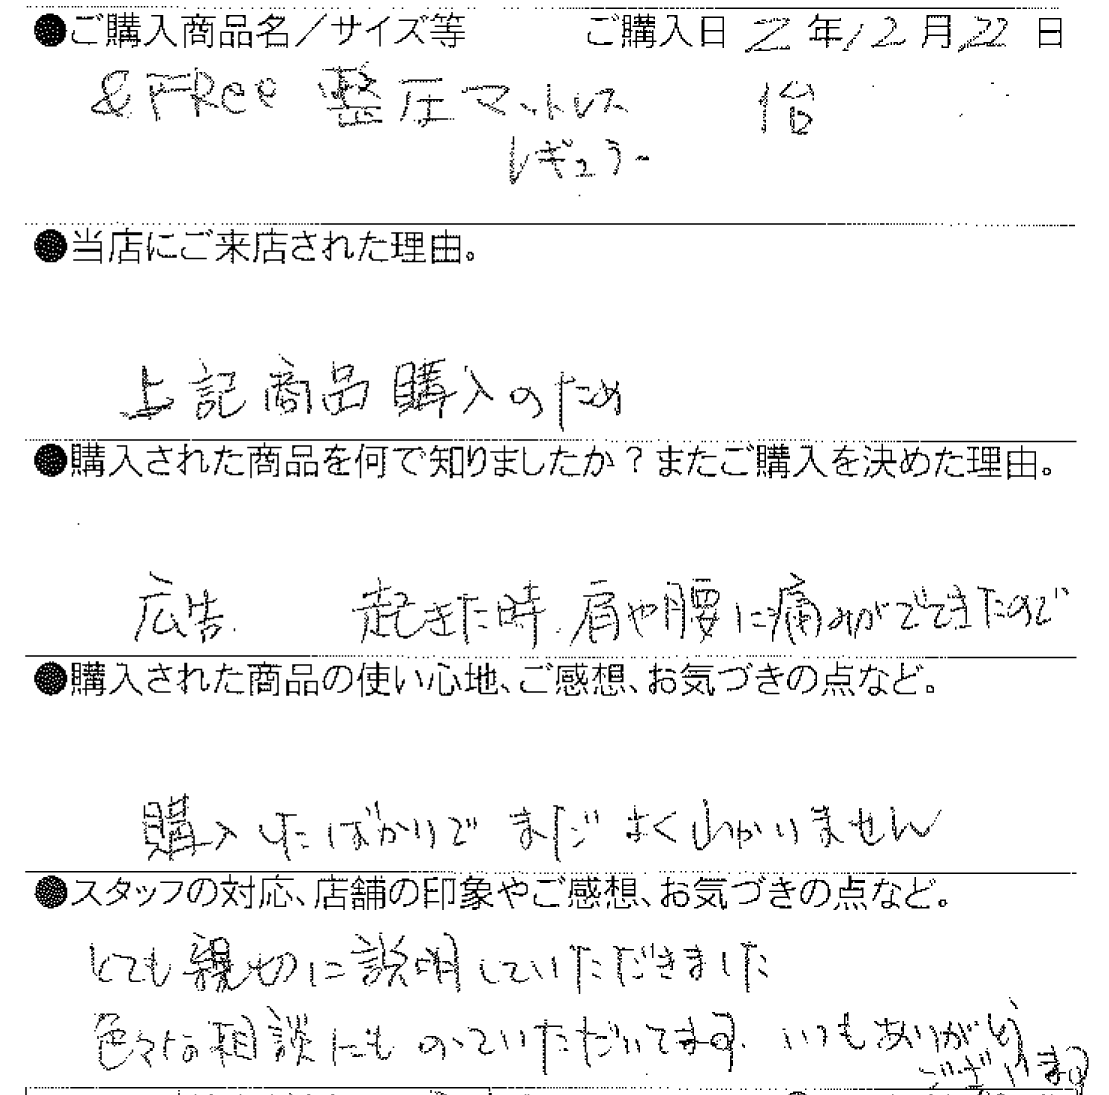 ●ご購入商品名／サイズ等　ご購入日 2年12月22日
&FRee 整圧マットレス
レギュラー
●当店にご来店された理由。
上記商品購入のため
●購入された商品を何で知りましたか？またご購入を決めた理由。
広告. 起きた時、肩や腰に痛みがでてきたので
●購入された商品の使い心地、ご感想、お気づきの点など。
購入したばかりで まだ よくわかりません
●スタッフの対応、店舗の印象やご感想、お気づきの点など。
とても親切に説明していただきました
色々な相談にも のっていただいてます。いつもありがとう
ございます